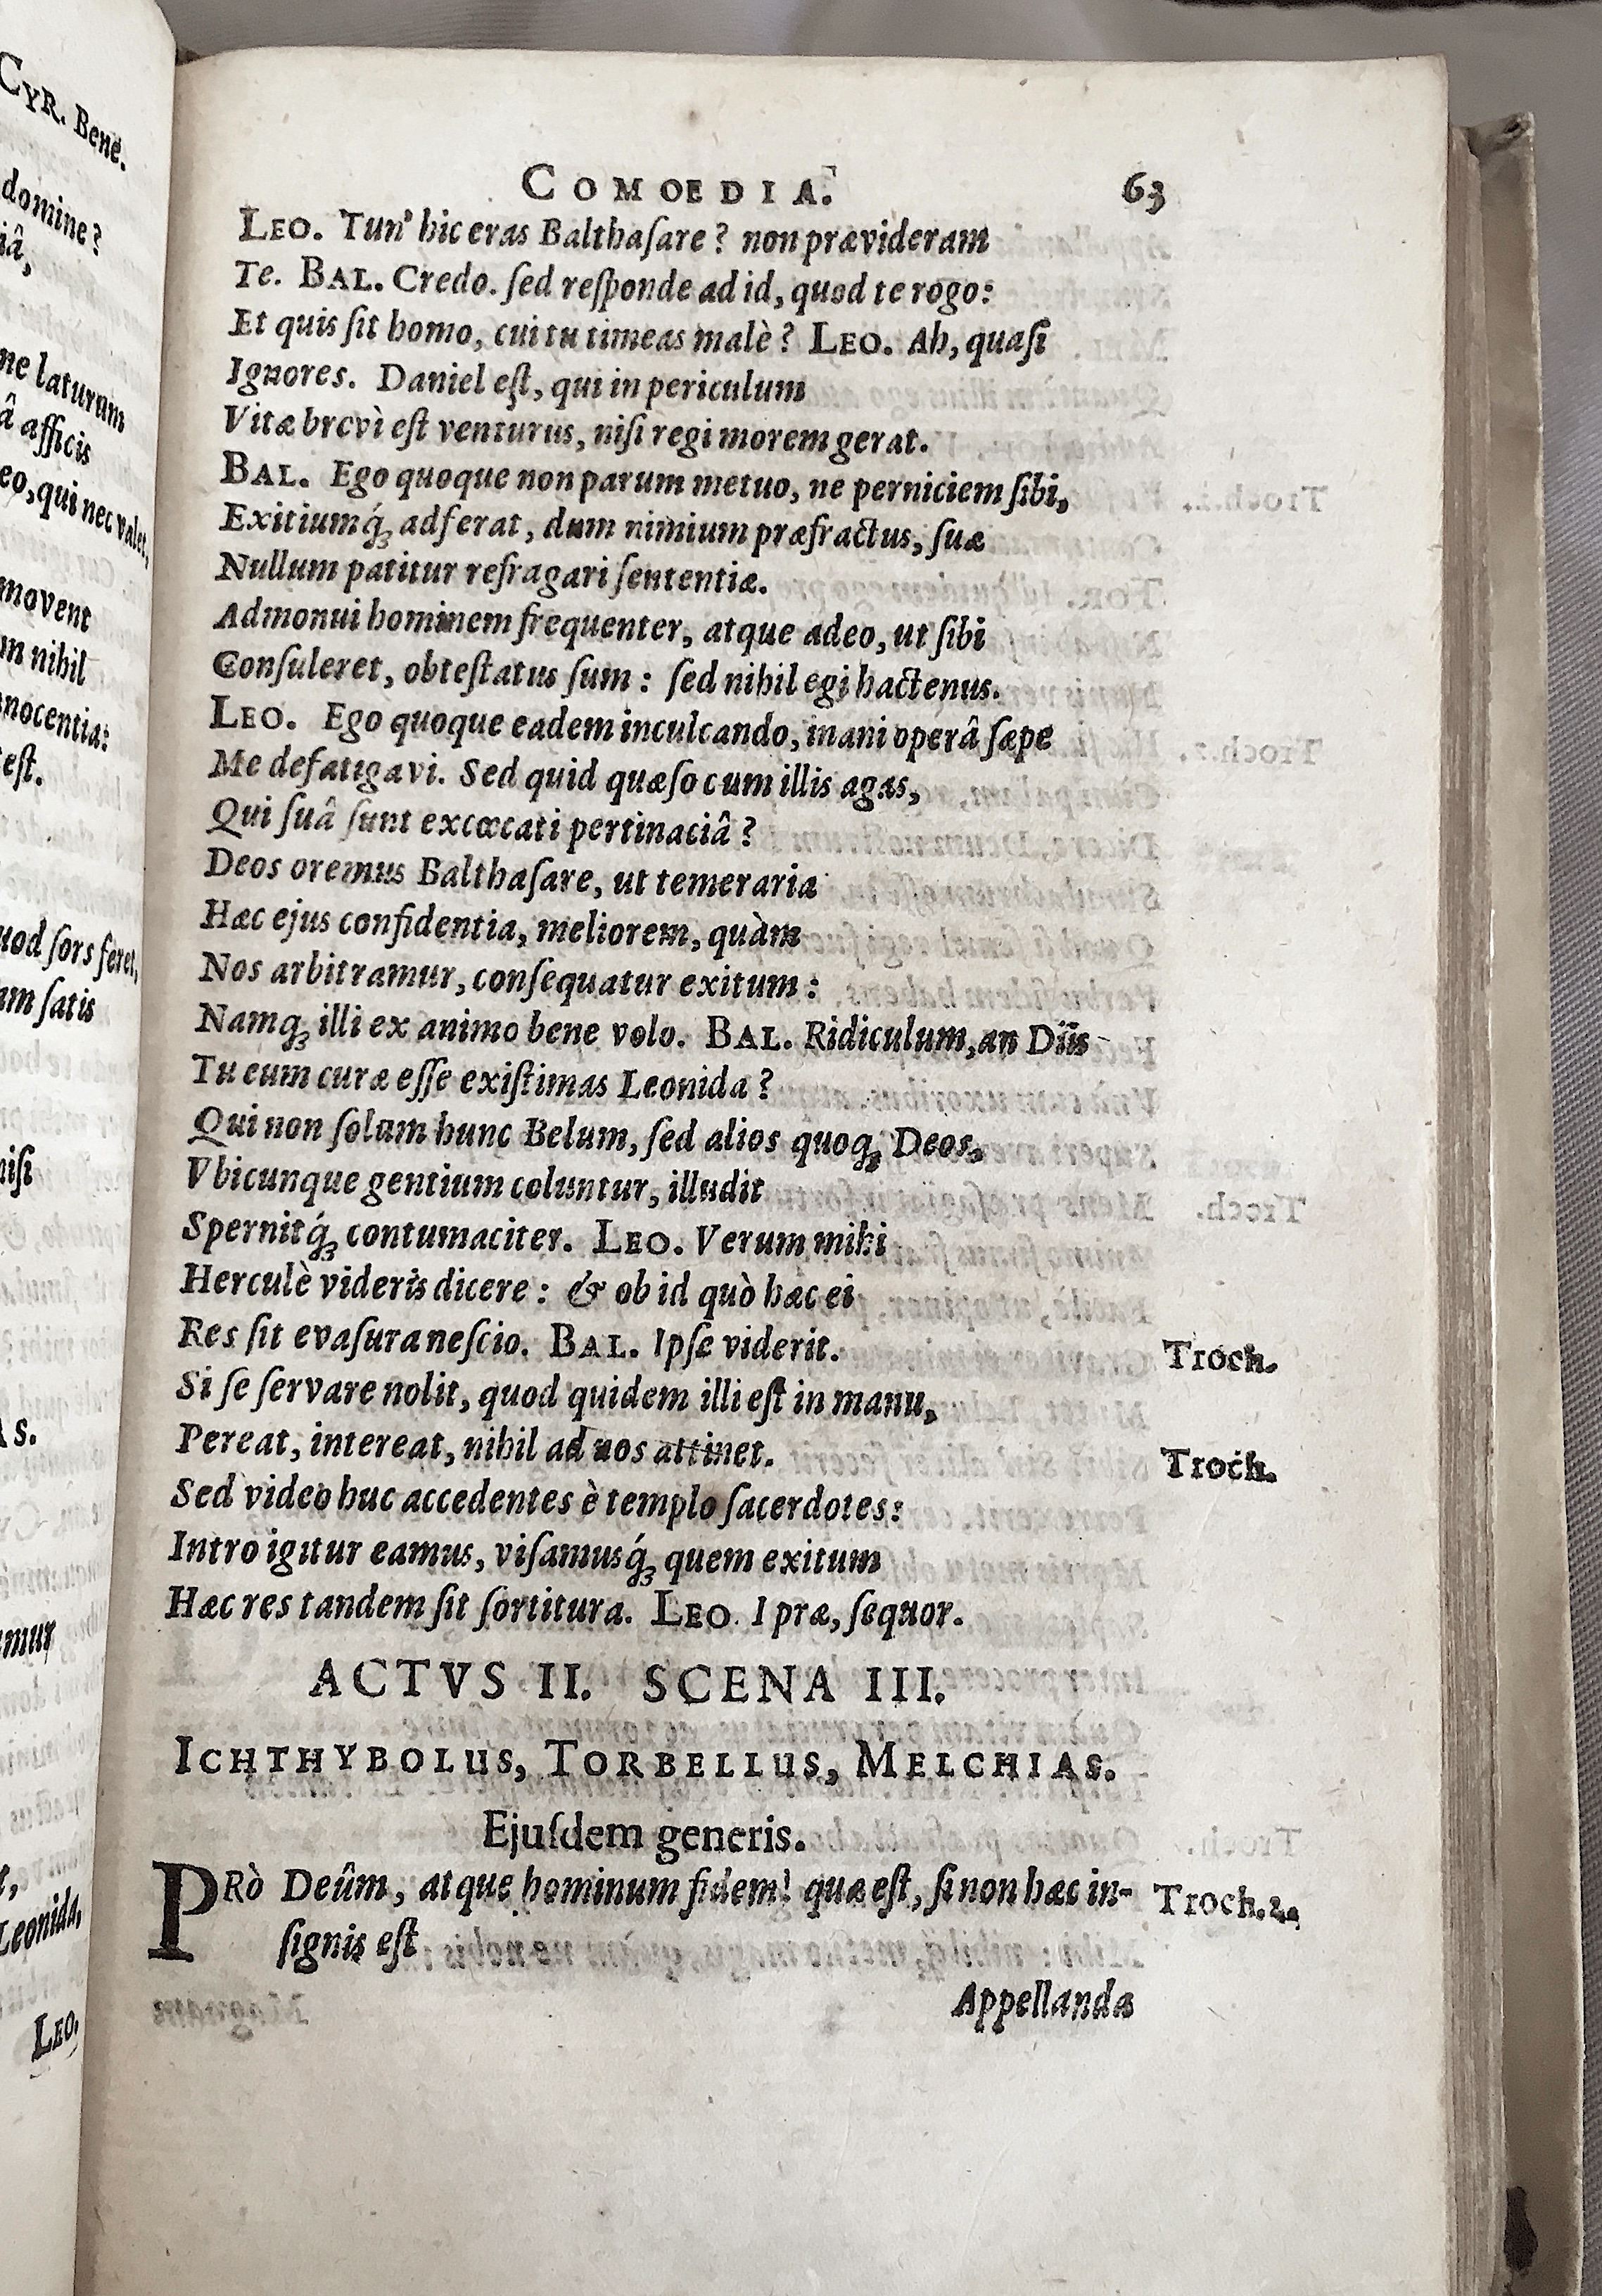 CYR. Bene.
domine?
iâ,
ne laturum
â afficis
eo, qui nec valet,
movent
m nihil
nnocentia:
est.
uod ſors feret,
am ſatis
niſi
AS.
amur
Leonida,
Leo.
COMOEDIA. 63
LEO. Tun' hic eras Balthaſare? non prævideram
Te. BAL. Credo. ſed reſponde ad id, quod te rogo:
Et quis ſit homo, cui tu timeas malè? LEO. Ah, quaſi
Ignores. Daniel eſt, qui in periculum
Vitæ brevì eſt venturus, niſi regi morem gerat.
BAL. Ego quoque non parum metuo, ne perniciem ſibi,
Exitiumq́ꝫ adferat, dum nimium præfractus, ſuæ
Nullum patitur refragari ſententiæ.
Admonui hominem frequenter, atque adeo, ut ſibi
Conſuleret, obteſtatus ſum: ſed nihil egi hactenus.
LEO. Ego quoque eadem inculcando, inani operâ ſæpe
Me defatigavi. Sed quid quæſo cum illis agas,
Qui ſuâ ſunt excœcati pertinaciâ?
Deos oremus Balthaſare, ut temeraria
Hæc ejus confidentia, meliorem, quàm
Nos arbitramur, conſequatur exitum:
Namqꝫ illi ex animo bene volo. BAL. Ridiculum, an Diis
Tu eum curæ eſſe exiſtimas Leonida?
Qui non ſolum hunc Belum, ſed alios quoqꝫ Deos,
Vbicunque gentium coluntur, illudit
Spernitq́ꝫ contumaciter. LEO. Verum mihi
Herculè videris dicere: & ob id quò hæc ei
Res ſit evaſura neſcio. BAL. Ipſe viderit. Troch.
Si ſe ſervare nolit, quod quidem illi eſt in manu,
Pereat, intereat, nihil ad nos attinet. Troch.
Sed video huc accedentes è templo ſacerdotes:
Intro igitur eamus, viſamusq́ꝫ quem exitum
Hæc res tandem ſit ſortitura. LEO. I præ, ſequor.
ACTVS II. SCENA III.
ICHTHYBOLUS, TORBELLUS, MELCHIAS.
Ejuſdem generis.
PRò Deûm, atque hominum fidem! quæ eſt, ſi non hæc in- Troch.2.
ſignis eſt
Appellanda